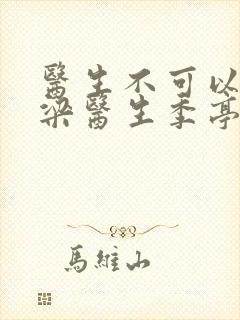 醫生不可以
梁醫生季亭
馬維山